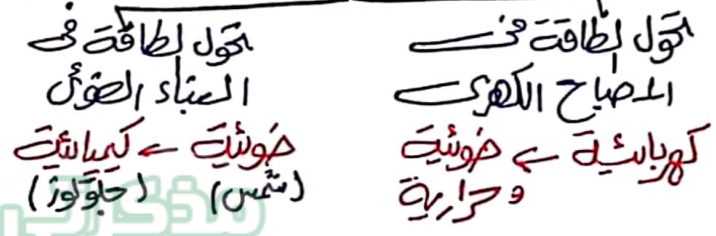 تحول لطاقة في
المصباح الكهربى
كهربائية ← ضوئية
وحرارية
تحول لطاقة فى
البناء الضوئى
ضوئية ← كيميائية
(شمس) (جلوكوز)